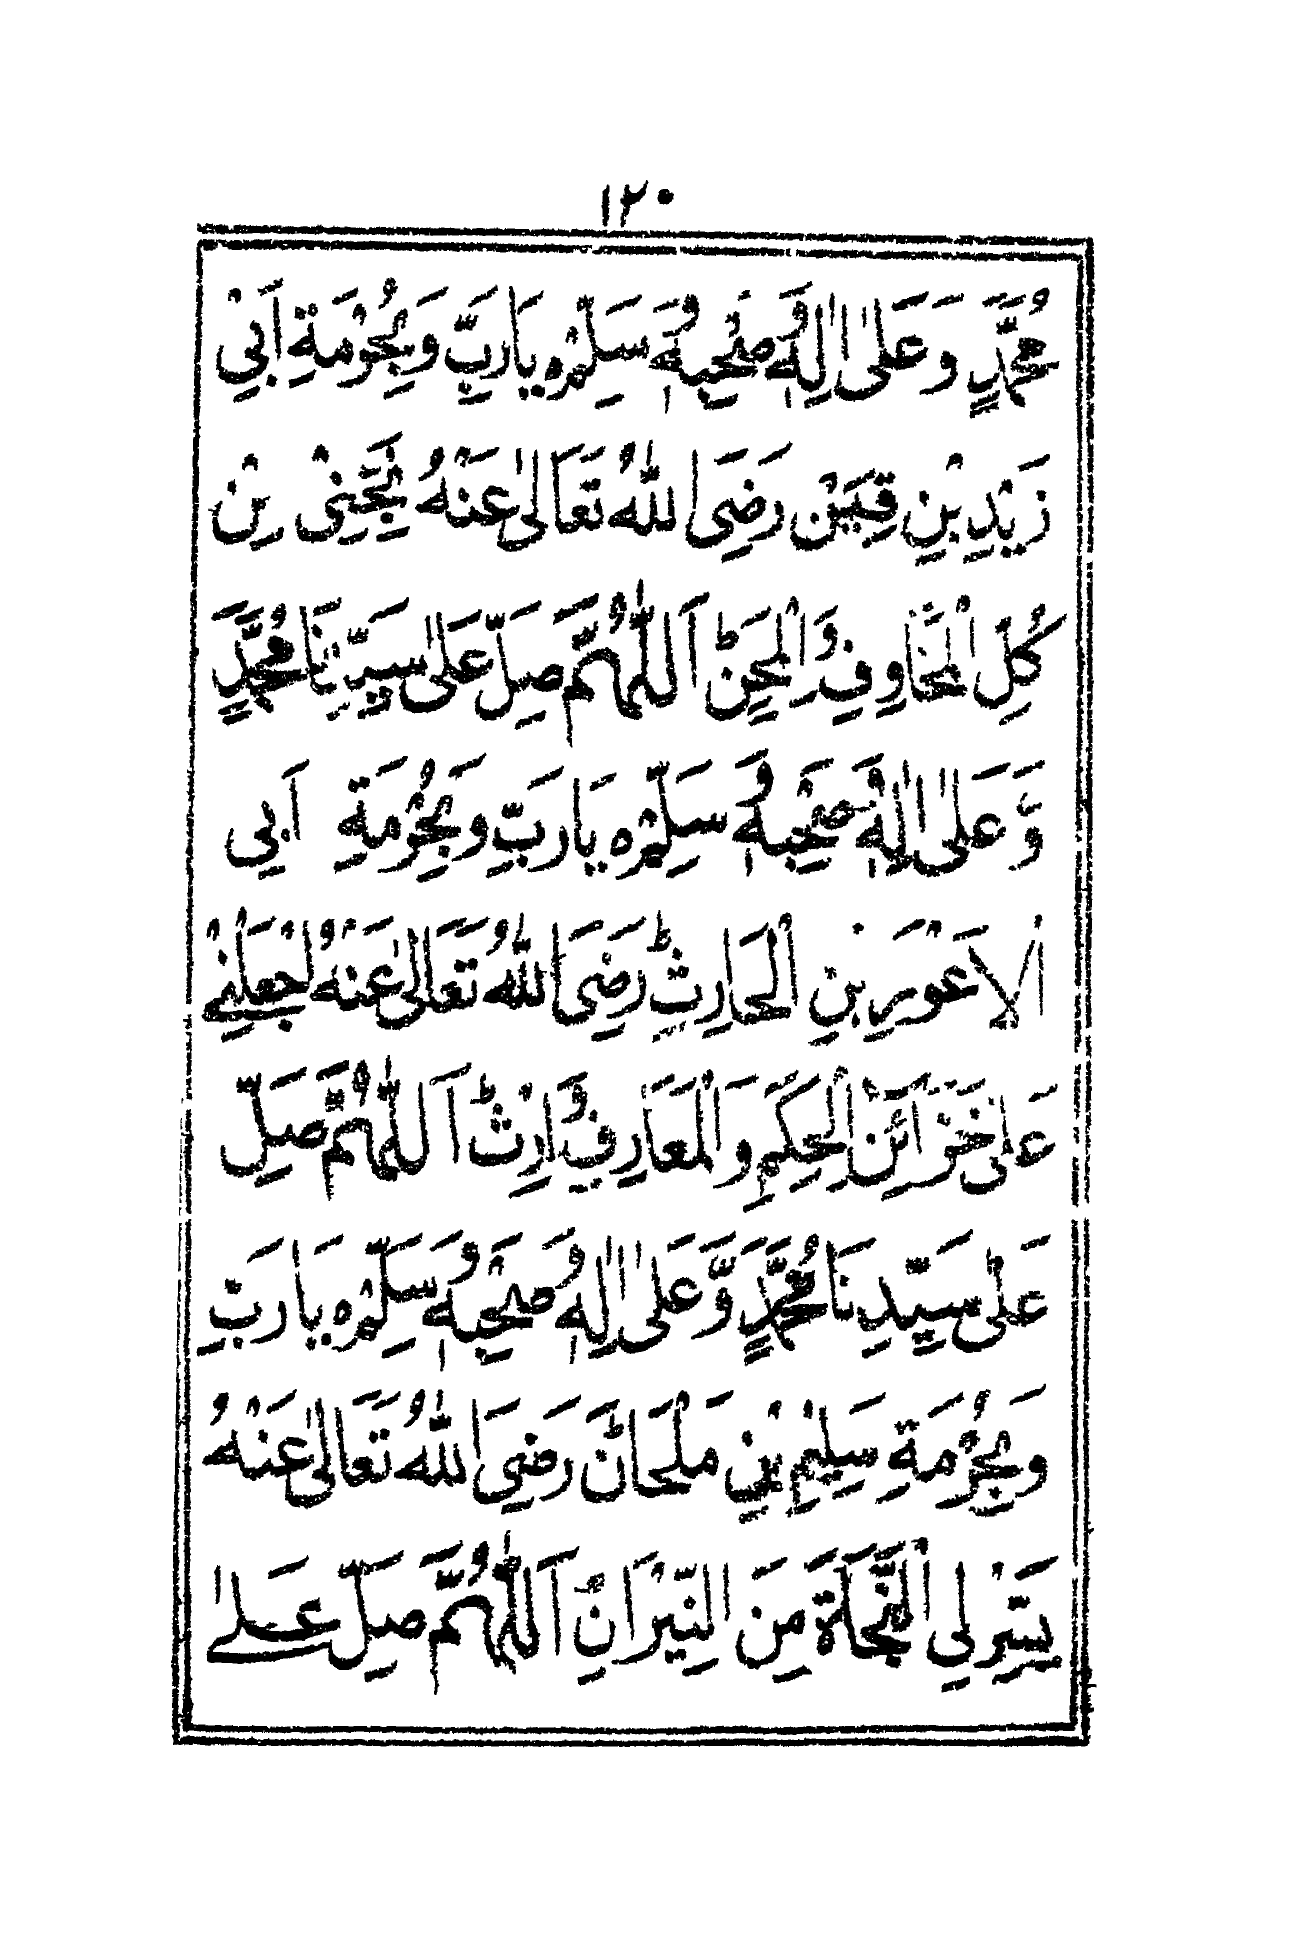 ١٢٠
مُحَمَّدٍ وَعَلٰى اٰلِهٖ وَصَحْبِهٖ وَسَلِّمْ ہ يَارَبِّ وَبِحُرْمَةِ اَبِيْ
زَيْدِ بْنِ قَيْسٍ رَضِىَ اللّٰهُ تَعَالٰى عَنْهُ نَجِّنِىْ مِنْ
كُلِّ الْمَخَاوِفِ وَالْمِحَنِ ط اَللّٰهُمَّ صَلِّ عَلٰى سَيِّدِنَا مُحَمَّدٍ
وَّعَلٰى اٰلِهٖ وَصَحْبِهٖ وَسَلِّمْ ہ يَارَبِّ وَبِحُرْمَةِ اَبِى
الْاَعْوَرِ بْنِ الْحَارِثِ ط رَضِىَ اللّٰهُ تَعَالٰى عَنْهُ اجْعَلْنِىْ
عَلٰى خَزَائِنِ الْحِكَمِ وَالْمَعَارِفِ وَارِثْ ط اَللّٰهُمَّ صَلِّ
عَلٰى سَيِّدِنَا مُحَمَّدٍ وَّعَلٰى اٰلِهٖ وَصَحْبِهٖ وَسَلِّمْ ہ يَارَبِّ
وَبِحُرْمَةِ سَلِيْمِ بْنِ مَلْحَانَ ط رَضِىَ اللّٰهُ تَعَالٰى عَنْهُ
يَسِّرْ لِى النَّجَاةَ مِنَ النِّيْرَانِ ط اَللّٰهُمَّ صَلِّ عَلٰى